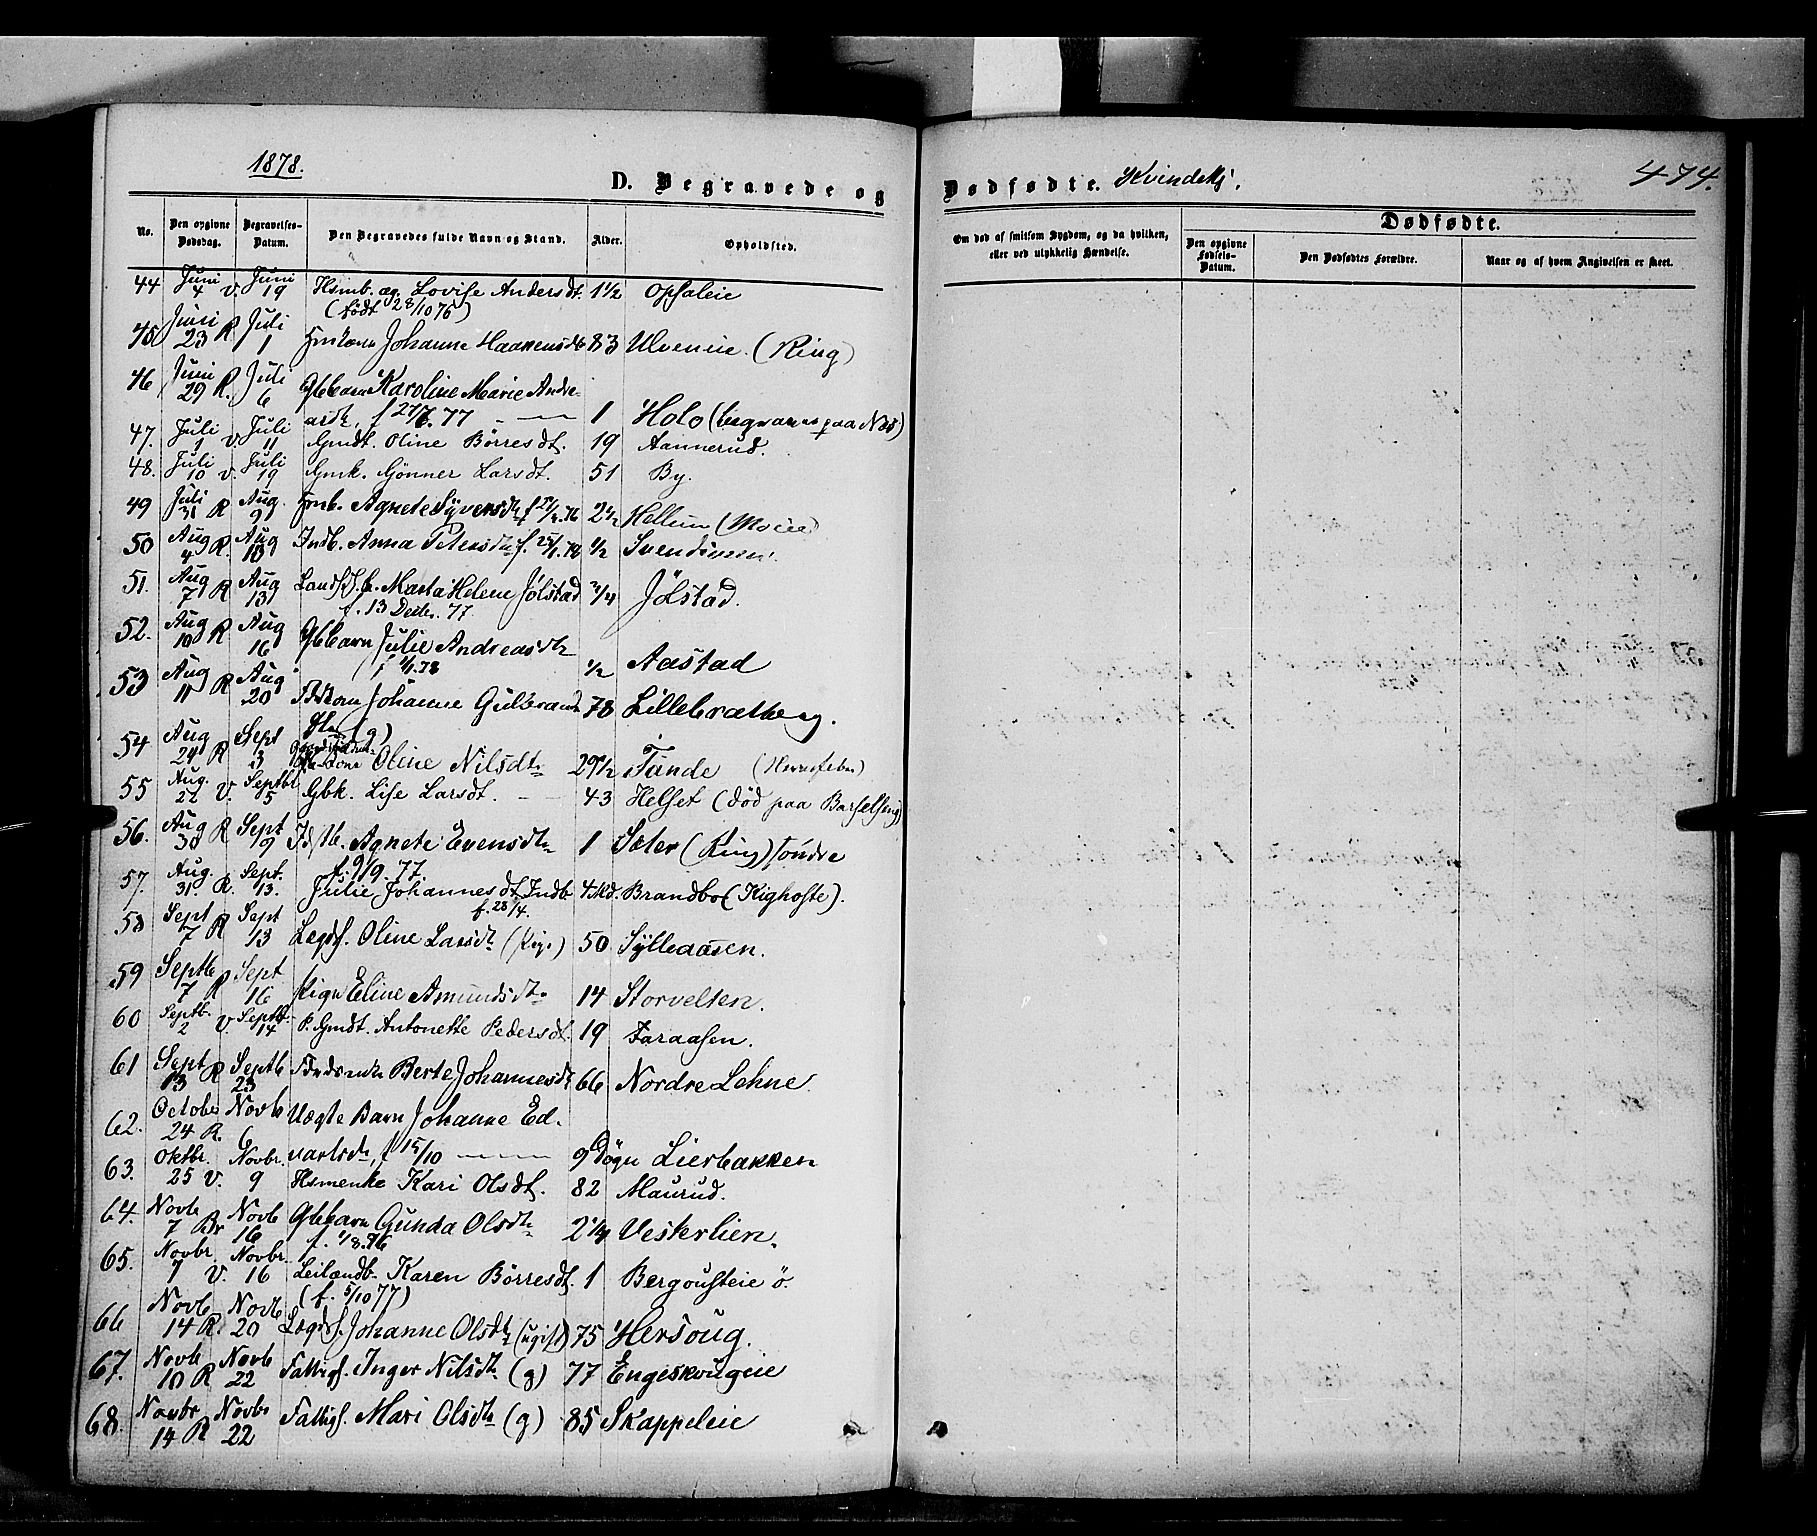 1878.
D. Begravede og
Dødfødte. Kvindekj.
474.
No. Den opgivne Dødsdag. Begravelses-Datum. Den Begravedes fulde Navn og Stand. Alder. Opholdsted.
Om død af smitsom Sygdom, og da hvilken, eller ved ulykkelig Hændelse.
Dødfødte.
Den opgivne Fødsels-Datum. Den Dødfødtes Forældre. Naar og af hvem Angivelsen er skeet.
44 Juni 4 V. Juni 19 Hsmb. æg. Lovise Andersdt. 1 1/2 Opsaleie
(født 28/10 76)
45 Juni 23 R Juli 1 Johanne Haakensdt 83 Ulveneie (Ring)
46 Juni 29 R. Juli 6 Gbbarn Karoline Marie Andre-
asdt, f 27/6.77 1 Holo (begraves paa Næs)
47. Juli 1 V Juli 11 Gmdt. Oline Børresdt. 19 Aannerud.
48. Juli 10 V. Juli 19 Gmk. Gjønner Larsdt. 51 By.
49 Juli 31 R Aug. 9 Hmb. Agnete Syversdt 2 1/2 Hellum (Moeie)
50 Aug 4 R. Aug 10 Indb. Anna Petersdt f. 1/2
51. Aug 7 R Aug 13 Marta Helene Jølstad 3/4 Jølstad.
f. 13 Decbr. 77
52. Aug 10 R Aug 16 Gbbarn Julie Andreasdt
f 1/1.78 1/2 Aastad
53 Aug 11 R Aug 20 Johanne Gulbrands 78 Lillebrætberg.
54 Aug 24 R Sept 3 Oline Nilsdt. 29 1/2 Tande
55 Aug. 22 V. Septbr 5 Gbk. Lise Larsdt. 43 Helset (død paa Barselseng)
56. Aug 30 R Sept 9 Agnete Evensdt 1 Sæter (Ring) søndre
f. 9/9.77.
57. Aug. 31 R. Sept. 13. Julie Johannesdt Indb 4 Md. Brandbo (Kighoste).
f. 28/4.
58 Sept 7 R Sept 13 Lægdsl. Oline Larsdt (Pige) 50 Sylleaasen.
59 Septb 7 R Sept 16 Pige Eline Amundsdt. 14 Storvelten.
60 Septb. 2 V. Septbr 14 P. Gmdt. Antonette Pedersdt. 19 Faraasen.
61 Sept 13 R Septb 23 Berte Johannesdt 66 Nordre Lehne
62. October 24 R. Novb 6 Uægte Barn Johanne Ed-
vartsdt, f 15/10 9 Døgn Lierbakken
63. Oktbr. 25 V. Novbr. 9 Hsmenke Kari Olsdt. 82 Maurud.
64. Novb 7 Br Novb 16 Gbbarn Gunda Olsdt 2 1/4 Vesterlien.
f. 1/8.76
65. Novbr 7 V. Novbr. 16 Leilændb. Karen Børresdt. 1 Bergousteie ö.
(f. 5/10 77)
66 Novb 14 R. Novb 20 Lægdsl. Johanne Olsdt (ugift) 75 Hersoug.
67. Novb 10 R Novb 22 Fattigl. Inger Nilsdt (g) 77 Engeskougeie
68. Novbr 14 R Novbr 22 Fattigl. Mari Olsdt (g) 85 Skappeleie